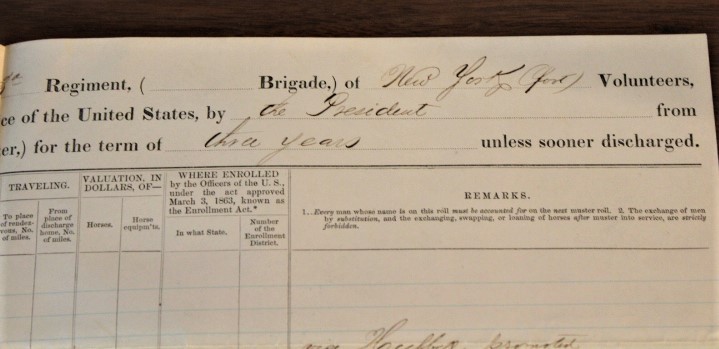 Regiment, ( Brigade,) of New York (foot) Volunteers,
ce of the United States, by the President from
er,) for the term of three years unless sooner discharged.
TRAVELING.
To place of rendez-
vous, No.
of miles.
From
place of
discharge
home, No.
of miles.
VALUATION, IN
DOLLARS, OF—
Horses.
Horse
equipm'ts.
WHERE ENROLLED
by the Officers of the U. S.,
under the act approved
March 3, 1863, known as
the Enrollment Act.*
In what State.
Number
of the
Enrollment
District.
REMARKS.
1..Every man whose name is on this roll must be accounted for on the next muster roll. 2. The exchange of men
by substitution, and the exchanging, swapping, or loaning of horses after muster into service, are strictly
forbidden.
promoted